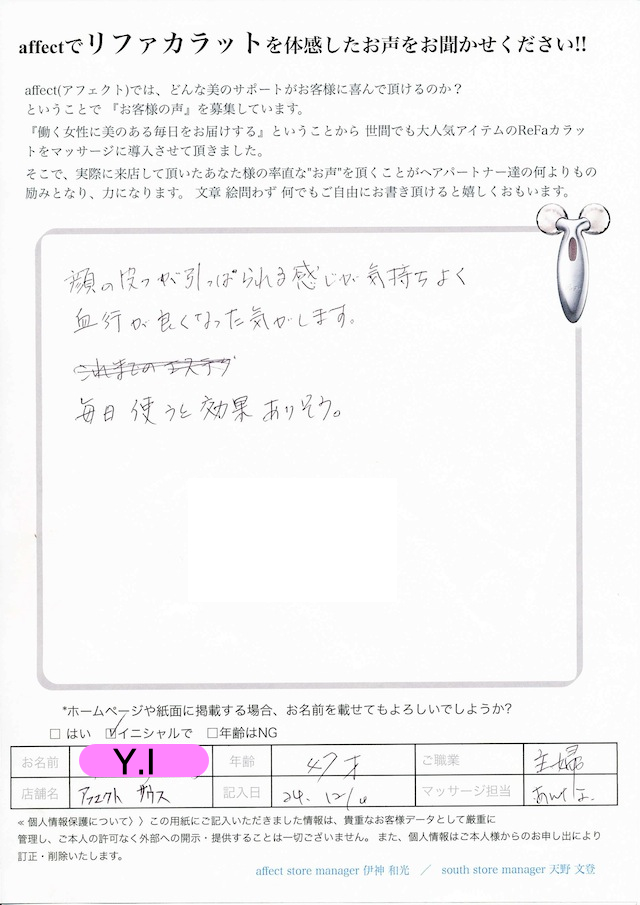 affectでリファカラットを体感したお声をお聞かせください!!
affect(アフェクト)では、どんな美のサポートがお客様に喜んで頂けるのか？
ということで 『お客様の声』を募集しています。
『働く女性に美のある毎日をお届けする』ということから 世間でも大人気アイテムのReFaカラッ
トをマッサージに導入させて頂きました。
そこで、実際に来店して頂いたあなた様の率直な"お声"を頂くことがヘアパートナー達の何よりもの
励みとなり、力になります。 文章 絵問わず 何でもご自由にお書き頂けると嬉しくおもいます。
顔の皮フが引っぱられる感じが気持ちよく
血行が良くなった気がします。
これまでのエステ
毎日使うと効果ありそう。
*ホームページや紙面に掲載する場合、お名前を載せてもよろしいでしょうか?
□ はい ☑イニシャルで □年齢はNG
お名前 Y.I 年齢 47才 ご職業 主婦
店舗名 アフェクト サウス 記入日 24. 12/10 マッサージ担当
≪ 個人情報保護について〉〉この用紙にご記入いただきました情報は、貴重なお客様データとして厳重に
管理し、ご本人の許可なく外部への開示・提供することは一切ございません。 また、個人情報はご本人様からのお申し出により
訂正・削除いたします。
affect store manager 伊神 和光 ／ south store manager 天野 文登